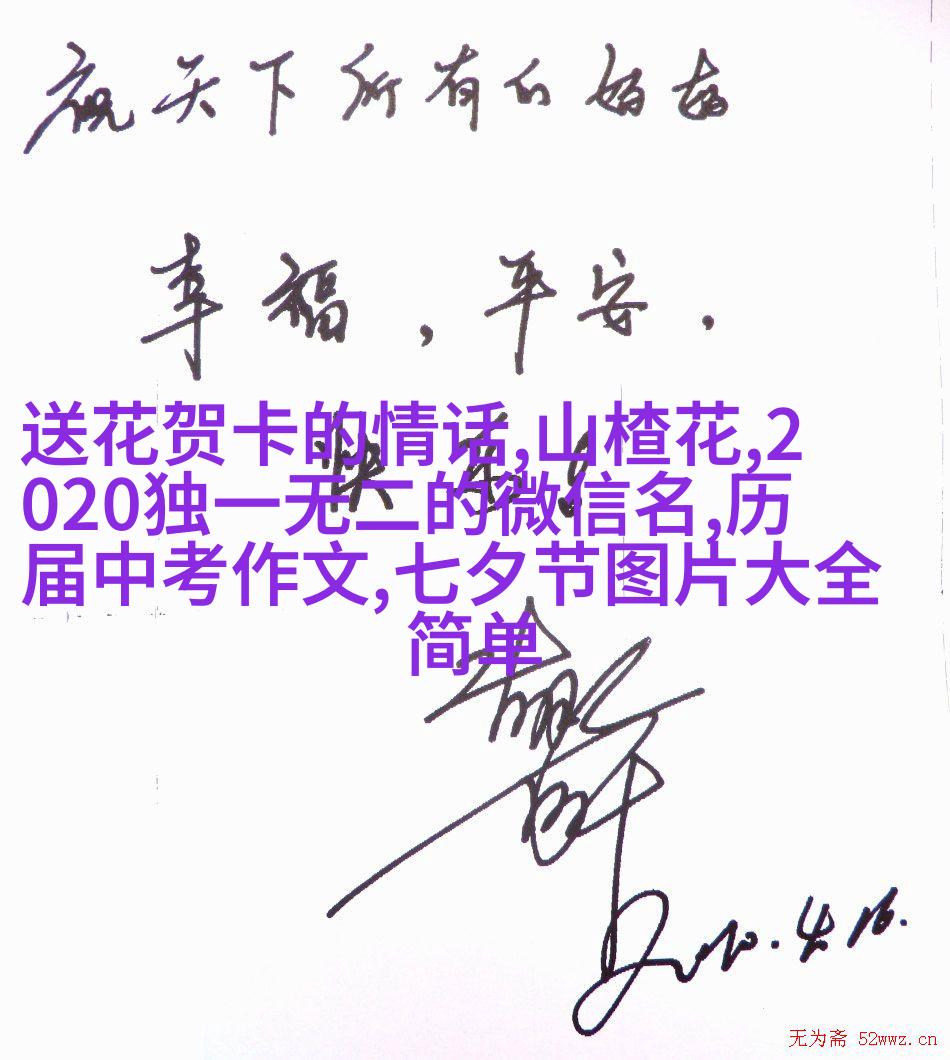 祝天下所有的妈妈
幸福，平安，
快乐！
送花贺卡的情话,山楂花,2
020独一无二的微信名,历
届中考作文,七夕节图片大全
简单
2010.4.16.
无为斋 52wwz.cn